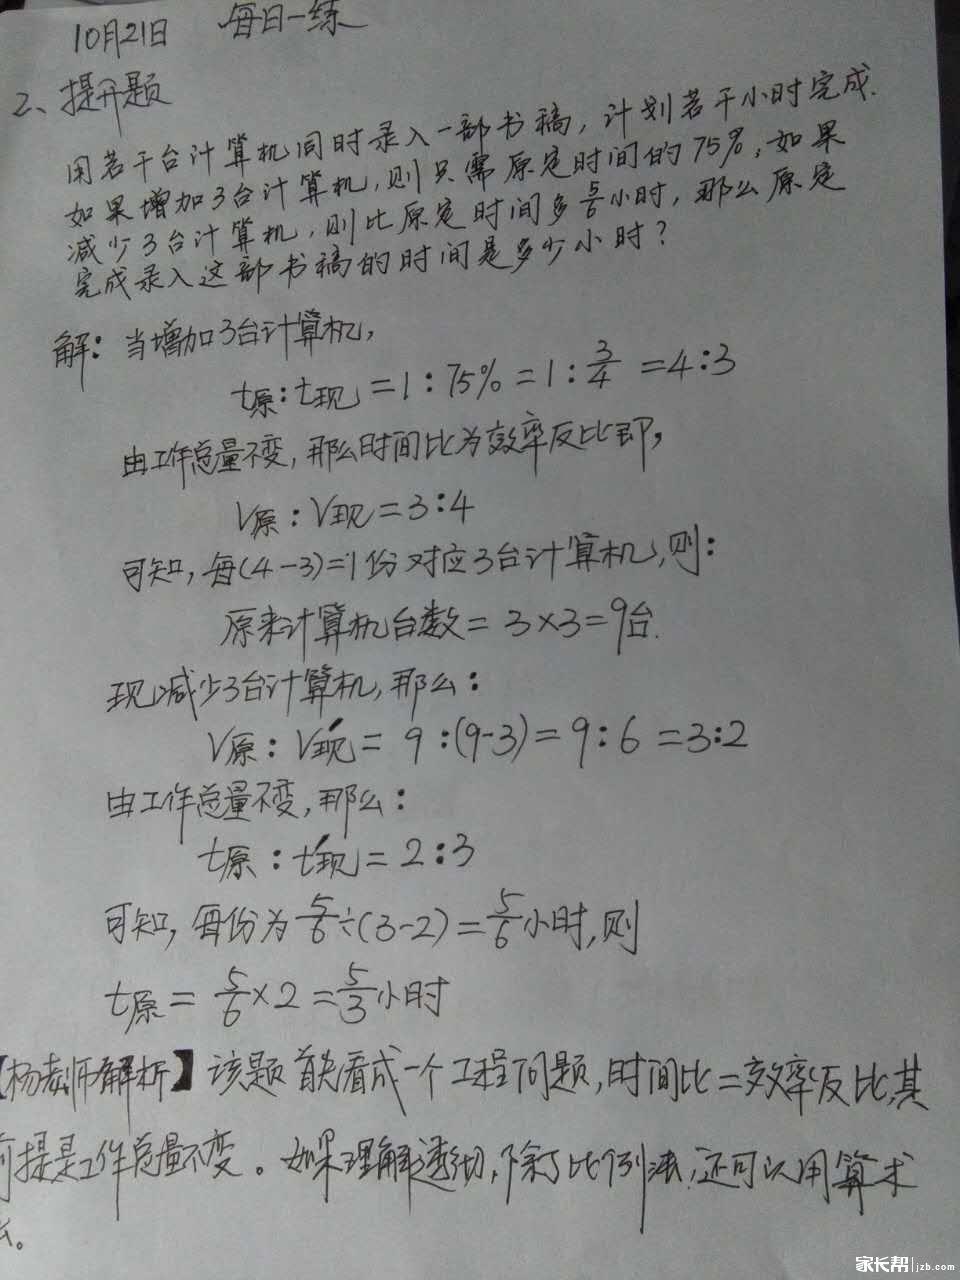 10月21日 每日一练
2、提升题
用若干台计算机同时录入一部书稿，计划若干小时完成.
如果增加3台计算机，则只需原定时间的75%，如果
减少3台计算机，则比原定时间多5/6小时，那么原定
完成录入这部书稿的时间是多少小时？
解：当增加3台计算机，
t原：t现＝1：75%＝1：3/4＝4：3
由工作总量不变，那么时间比为效率反比即，
V原：V现＝3：4
可知，每(4－3)＝1份对应3台计算机，则：
原来计算机台数＝3×3＝9台.
现减少3台计算机，那么：
V原：V′现＝9：(9-3)＝9：6＝3：2
由工作总量不变，那么：
t原：t′现＝2：3
可知，每份为5/6÷(3－2)＝5/6小时，则
t原＝5/6×2＝5/3小时
【杨老师解析】该题首先看成一个工程问题，时间比＝效率反比，其
前提是工作总量不变。如果理解透彻，除了比例法，还可以用算术
家长帮 jzb.com